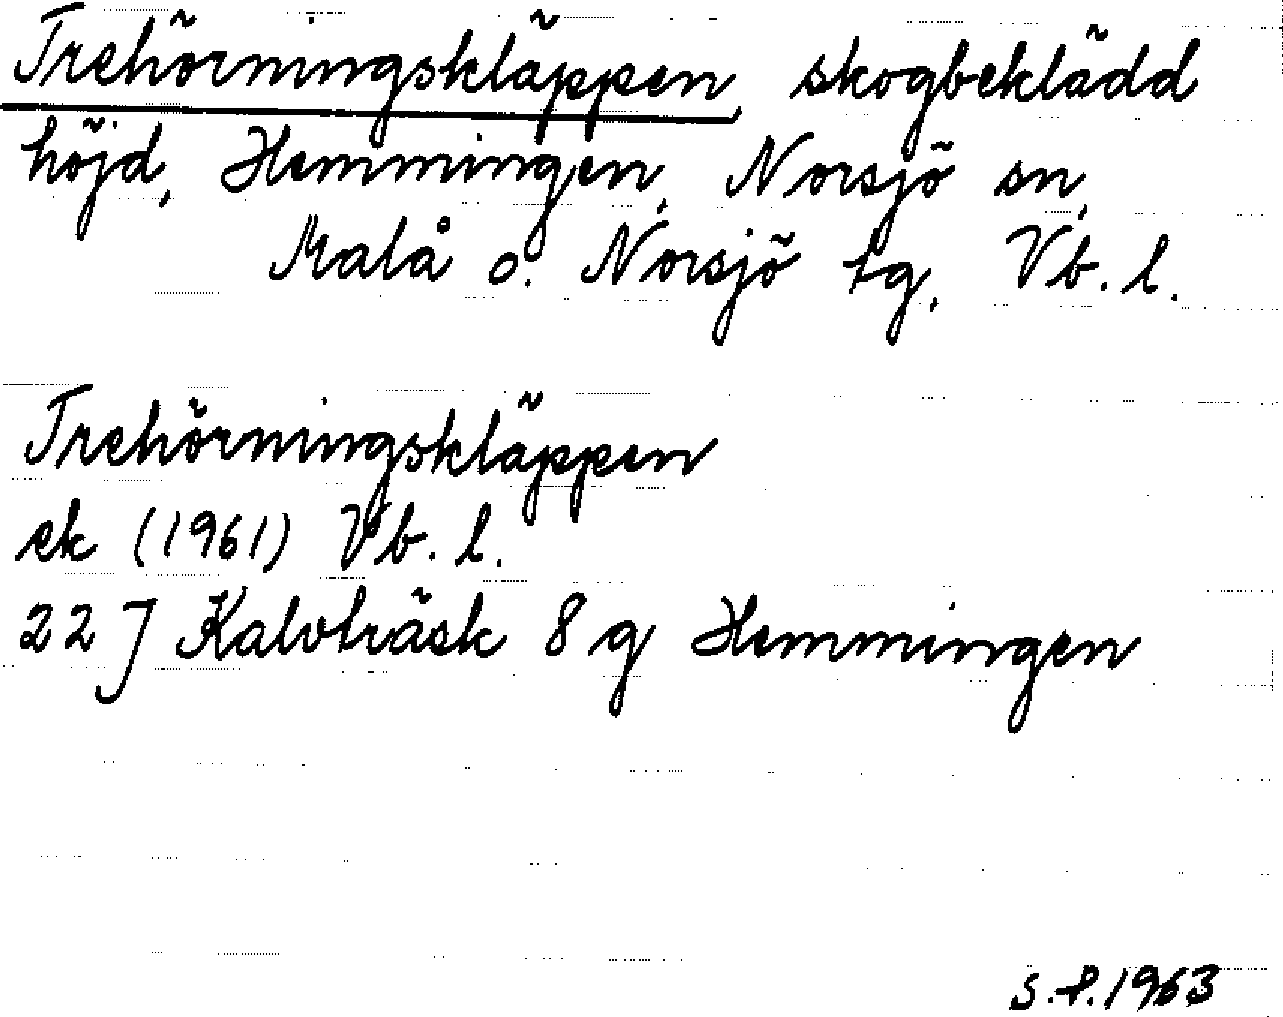 Trehörningskläppen, skogbeklädd
höjd, Hemmingen, Norsjö sn,
Malå o. Norsjö tg, Vb. l.
Trehörningskläppen
ek (1961) Vb. l.
22 J Kalvträsk 8 g Hemmingen
S.P. 1963